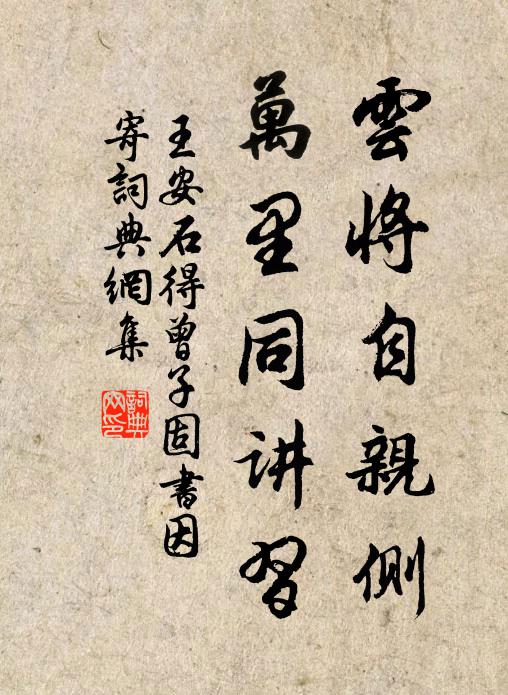 雲將自親側
萬里同讲習
王安石得曾子固書因
寄詞典網集
詞典網印